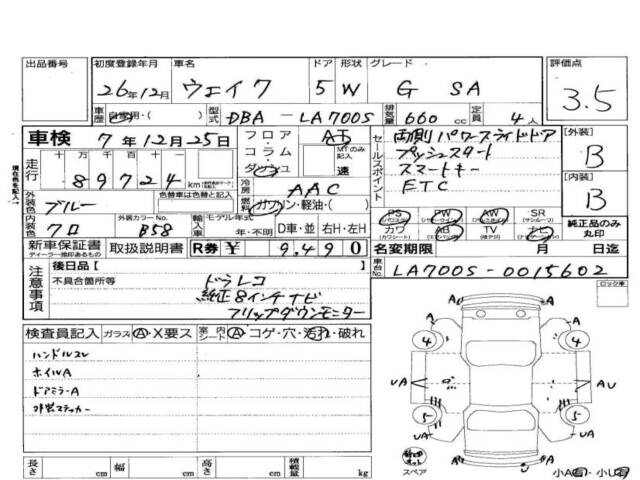 出品番号 初度登録年月 車名 ドア 形状 グレード 評価点
26年12月 ウェイク 5 W G SA 3.5
車歴 自家用・( ) 型式 DBA - LA700S 排気量 660 cc 定員 4人
車検 7年12月25日
フロア・コラム・ダッシュ AT MTのみ記入 速
セールスポイント
両側パワースライドドア
プッシュスタート
スマートキー
ETC
[外装] B
[内装] B
走行 十万千百十一
89724 km
冷房 AAC
外装色 ブルー 色替車は色替と記入
燃料 ガソリン・軽油・( )
内装色 クロ 外装カラーNo. B58
輸入車 モデル年式 年・不明 D車・並 右H・左H
PS (パワステ) PW (パワーウィンドウ) AW (アルミホイール) SR (サンルーフ)
カワ (カワシート) AB (エアバッグ) TV (地デジ) ナビ
純正品のみ丸印
新車保証書 ディーラー捺印あるもの 取扱説明書 R券 ¥ 9,490
名変期限 月 日迄
車台No. LA700S-0015602
現在色を記入
注意事項
後日品( )
不具合箇所等
ドラレコ
純正8インチナビ
フリップダウンモニター
ロック車
検査員記入 ガラス A・X要ス 室内シート A・コゲ・穴・汚れ・破れ
ハンドルスレ
ホイルA
ドアミラーA
外装ステッカー
A A A
4 4
A A
UA A U
5 5
UA UA
A A
スペア
小A 小U
長さ cm 幅 cm 高さ cm 積載量 kg